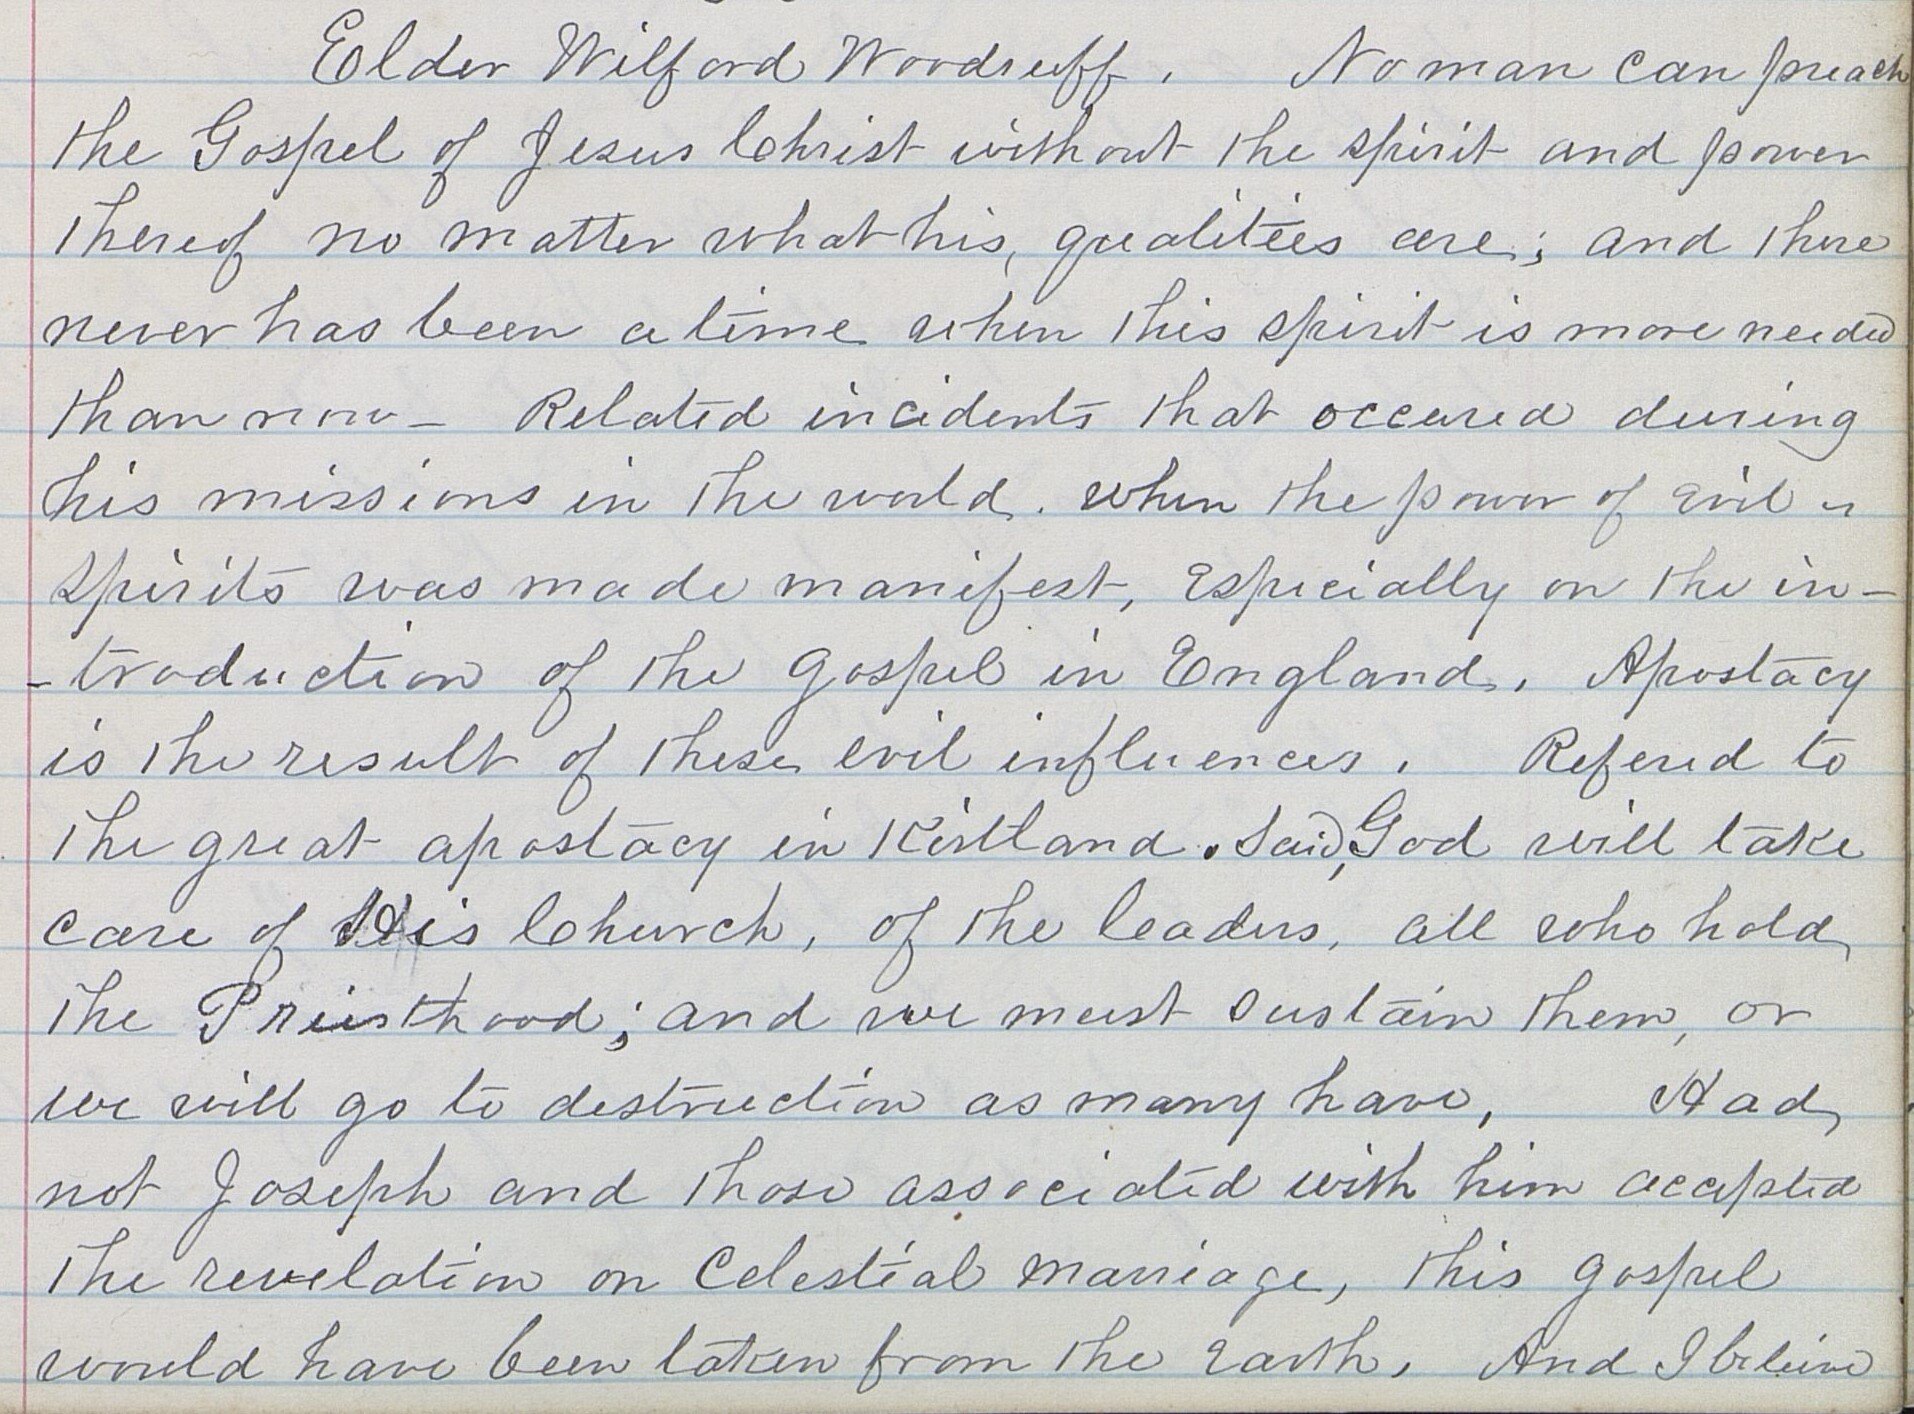 Elder Wilford Woodruff. No man can preach
the Gospel of Jesus Christ without the spirit and power
thereof no matter what his, qualities are; and there
never has been a time when this spirit is more needed
than now - Related incidents that occured during
his missions in the world. when the power of Evil
spirits was made manifest, Especially on the in-
-troduction of the gospel in England. Apostacy
is the result of these evil influences. Refered to
the great apostacy in Kirtland. Said, God will take
care of His Church, of the leaders, all who hold
the Priesthood; and we must sustain them, or
we will go to destruction as many have, Had
not Joseph and those associated with him accepted
the revelation on Celestial marriage, this gospel
would have been taken from the Earth, And I believe